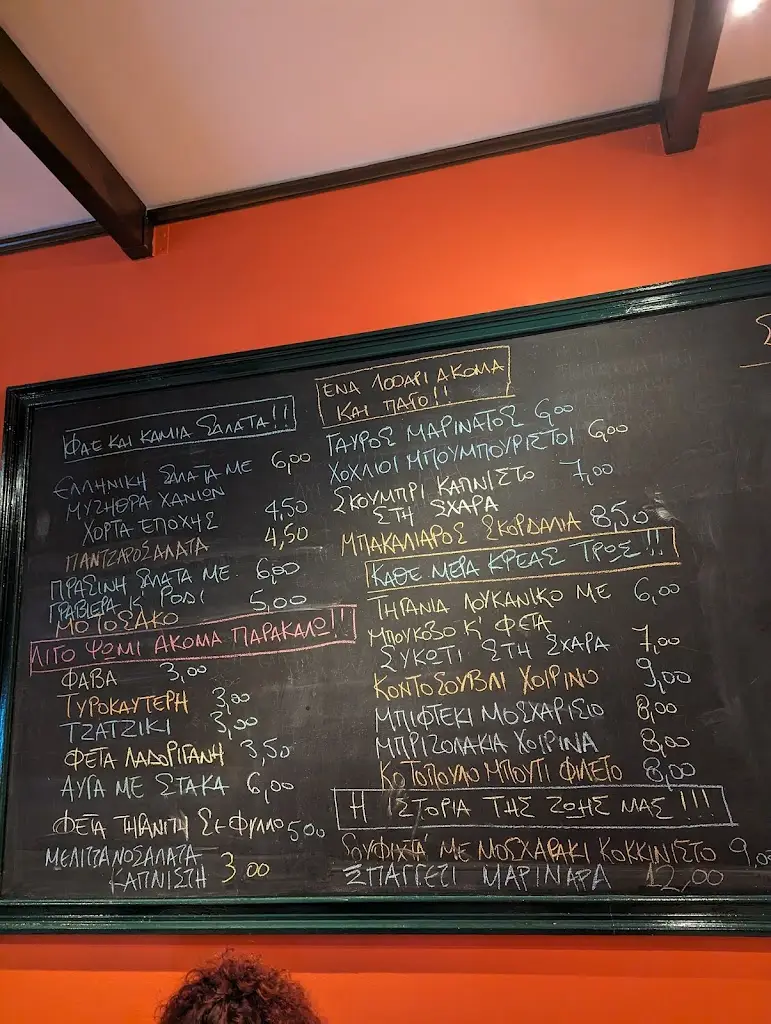 ΦΑΕ ΚΑΙ ΚΑΜΙΑ ΣΑΛΑΤΑ!!
ΕΛΛΗΝΙΚΗ ΣΑΛΑΤΑ ΜΕ 6,00
ΜΥΖΗΘΡΑ ΧΑΝΙΩΝ
ΧΟΡΤΑ ΕΠΟΧΗΣ 4,50
ΠΑΝΤΖΑΡΟΣΑΛΑΤΑ 4,50
ΠΡΑΣΙΝΗ ΣΑΛΑΤΑ ΜΕ 6,00
ΓΡΑΒΙΕΡΑ Κ' ΡΟΔΙ
5,00
ΛΙΓΟ ΨΩΜΙ ΑΚΟΜΑ ΠΑΡΑΚΑΛΩ!!
ΦΑΒΑ 3,00
ΤΥΡΟΚΑΥΤΕΡΗ 3,00
ΤΖΑΤΖΙΚΙ 3,00
ΦΕΤΑ ΛΑΔΟΡΙΓΑΝΗ 3,50
ΑΥΓΑ ΜΕ ΣΤΑΚΑ 6,00
ΦΕΤΑ ΤΗΓΑΝΙΤΗ ΣΕ ΦΥΛΛΟ 5,00
ΜΕΛΙΤΖΑΝΟΣΑΛΑΤΑ
ΚΑΠΝΙΣΤΗ 3.00
ΕΝΑ 100ΑΡΙ ΑΚΟΜΑ
ΚΑΙ ΠΑΓΟ!!
ΓΑΥΡΟΣ ΜΑΡΙΝΑΤΟΣ 6,00
ΧΟΧΛΙΟΙ ΜΠΟΥΜΠΟΥΡΙΣΤΟΙ 6,00
ΣΚΟΥΜΠΡΙ ΚΑΠΝΙΣΤΟ 7,00
ΣΤΗ ΣΧΑΡΑ
ΜΠΑΚΑΛΙΑΡΟΣ ΣΚΟΡΔΑΛΙΑ 8,50
ΚΑΘΕ ΜΕΡΑ ΚΡΕΑΣ ΤΡΩΣ!!
ΤΗΓΑΝΙΑ ΛΟΥΚΑΝΙΚΟ ΜΕ 6,00
ΜΠΟΥΚΟΒΟ Κ' ΦΕΤΑ
ΣΥΚΩΤΙ ΣΤΗ ΣΧΑΡΑ 7,00
ΚΟΝΤΟΣΟΥΒΛΙ ΧΟΙΡΙΝΟ 9,00
ΜΠΙΦΤΕΚΙ ΜΟΣΧΑΡΙΣΙΟ 8,00
ΜΠΡΙΖΟΛΑΚΙΑ ΧΟΙΡΙΝΑ 8,00
ΚΟΤΟΠΟΥΛΟ ΜΠΟΥΤΙ ΦΙΛΕΤΟ 8,00
Η ΙΣΤΟΡΙΑ ΤΗΣ ΖΩΗΣ ΜΑΣ!!!
ΣΟΥΦΙΧΤΑ ΜΕ ΜΟΣΧΑΡΑΚΙ ΚΟΚΚΙΝΙΣΤΟ 9,00
ΣΠΑΓΓΕΤΙ ΜΑΡΙΝΑΡΑ 12,00